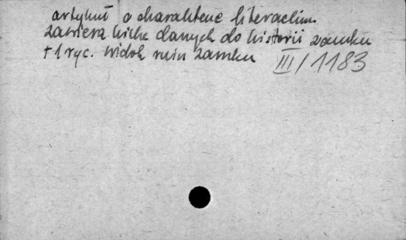 artykuł o charakterze literackim.
zawiera kilka danych do historii zamku
+ 1 ryc. widok ruin zamku III/1183